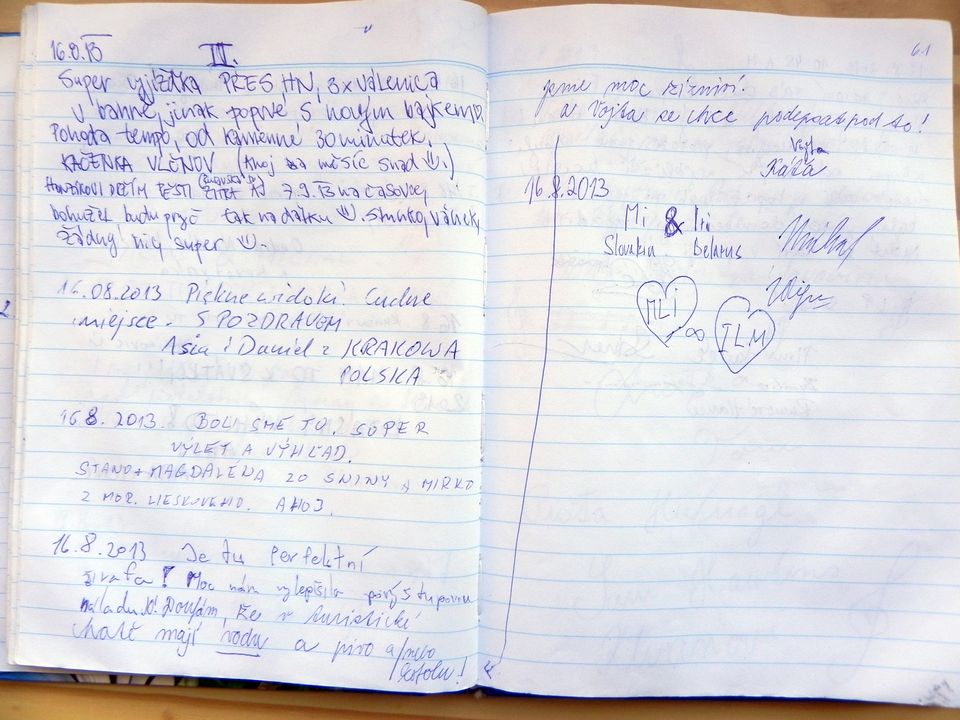 16.8.13 III.
Super vyjížďka PŘES HN, 3x válenica
v bahně, jinak poprvé s novým bajkem
Pohoda tempo, od Kamenné 30 minutek.
KAČENKA VLČNOV (Ahoj za měsíc snad)
7.9.13 na časovej
bohužel budu pryč tak na dálku
žádný super
16.08.2013 Piękne widoki! Cudne
miejsce. S POZDRAVEM
Asia i Daniel z KRAKOWA
POLSKA
16.8.2013. BOLI SME TU. SUPER
VÝLET A VÝHĽAD.
STANO + MAGDALÉNA ZO SNINY A MIRKO
Z MOR. LIESKOVÉHO. AHOJ.
16.8.2013 Je tu perfektní
žirafa! Moc nám vylepšila
náladu! Doufám, že v turistické
chatě mají vodu a pivo a/nebo
kofolu!
61
jsme moc žízniví.
a Vojta se chce podepsat pod to!
Vojta
Káťa
16.8.2013
Mi & Iri
Slovakia Belarus
Michal
MLI ∞ ILM